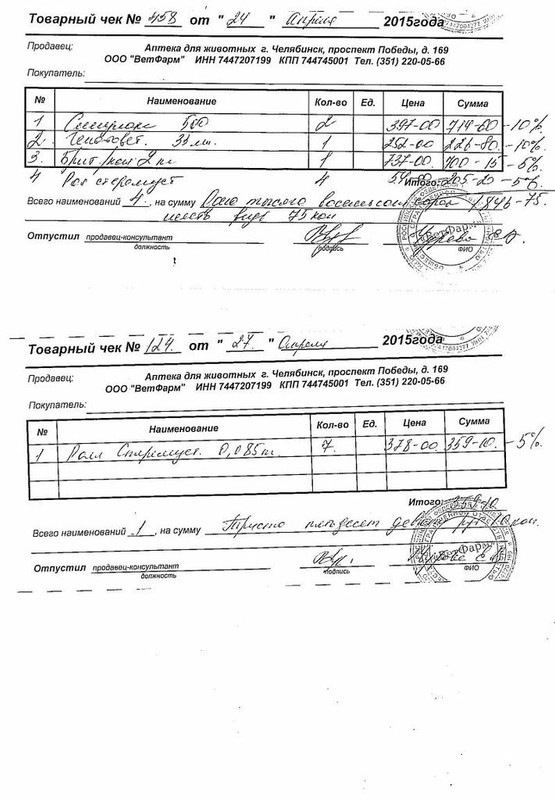 Товарный чек № 458 от "24" Апреля 2015года
Продавец: Аптека для животных г. Челябинск, проспект Победы, д. 169
ООО "ВетФарм" ИНН 7447207199 КПП 744745001 Тел. (351) 220-05-66
Покупатель:
№ Наименование Кол-во Ед. Цена Сумма
1 500 2 397-00 714-60 -10%
2. 33 мл. 1 252-00 226-80 -10%
3. Брит 2 кг 1 737-00 700-15 -5%
4 4 54-00 205-20 -5%
Итого:
Всего наименований 4, на сумму Одна тысяча восемьсот сорок 1846-75.
шесть руб 75 коп
Отпустил продавец-консультант
должность подпись ФИО
Товарный чек № 124. от "27." Апреля 2015года
Продавец: Аптека для животных г. Челябинск, проспект Победы, д. 169
ООО "ВетФарм" ИНН 7447207199 КПП 744745001 Тел. (351) 220-05-66
Покупатель:
№ Наименование Кол-во Ед. Цена Сумма
1 0,085кг. 7. 378-00 359-10. -5%
Итого: 359-10
Всего наименований 1, на сумму Триста пятьдесят девять руб 10 коп.
Отпустил продавец-консультант
должность подпись ФИО